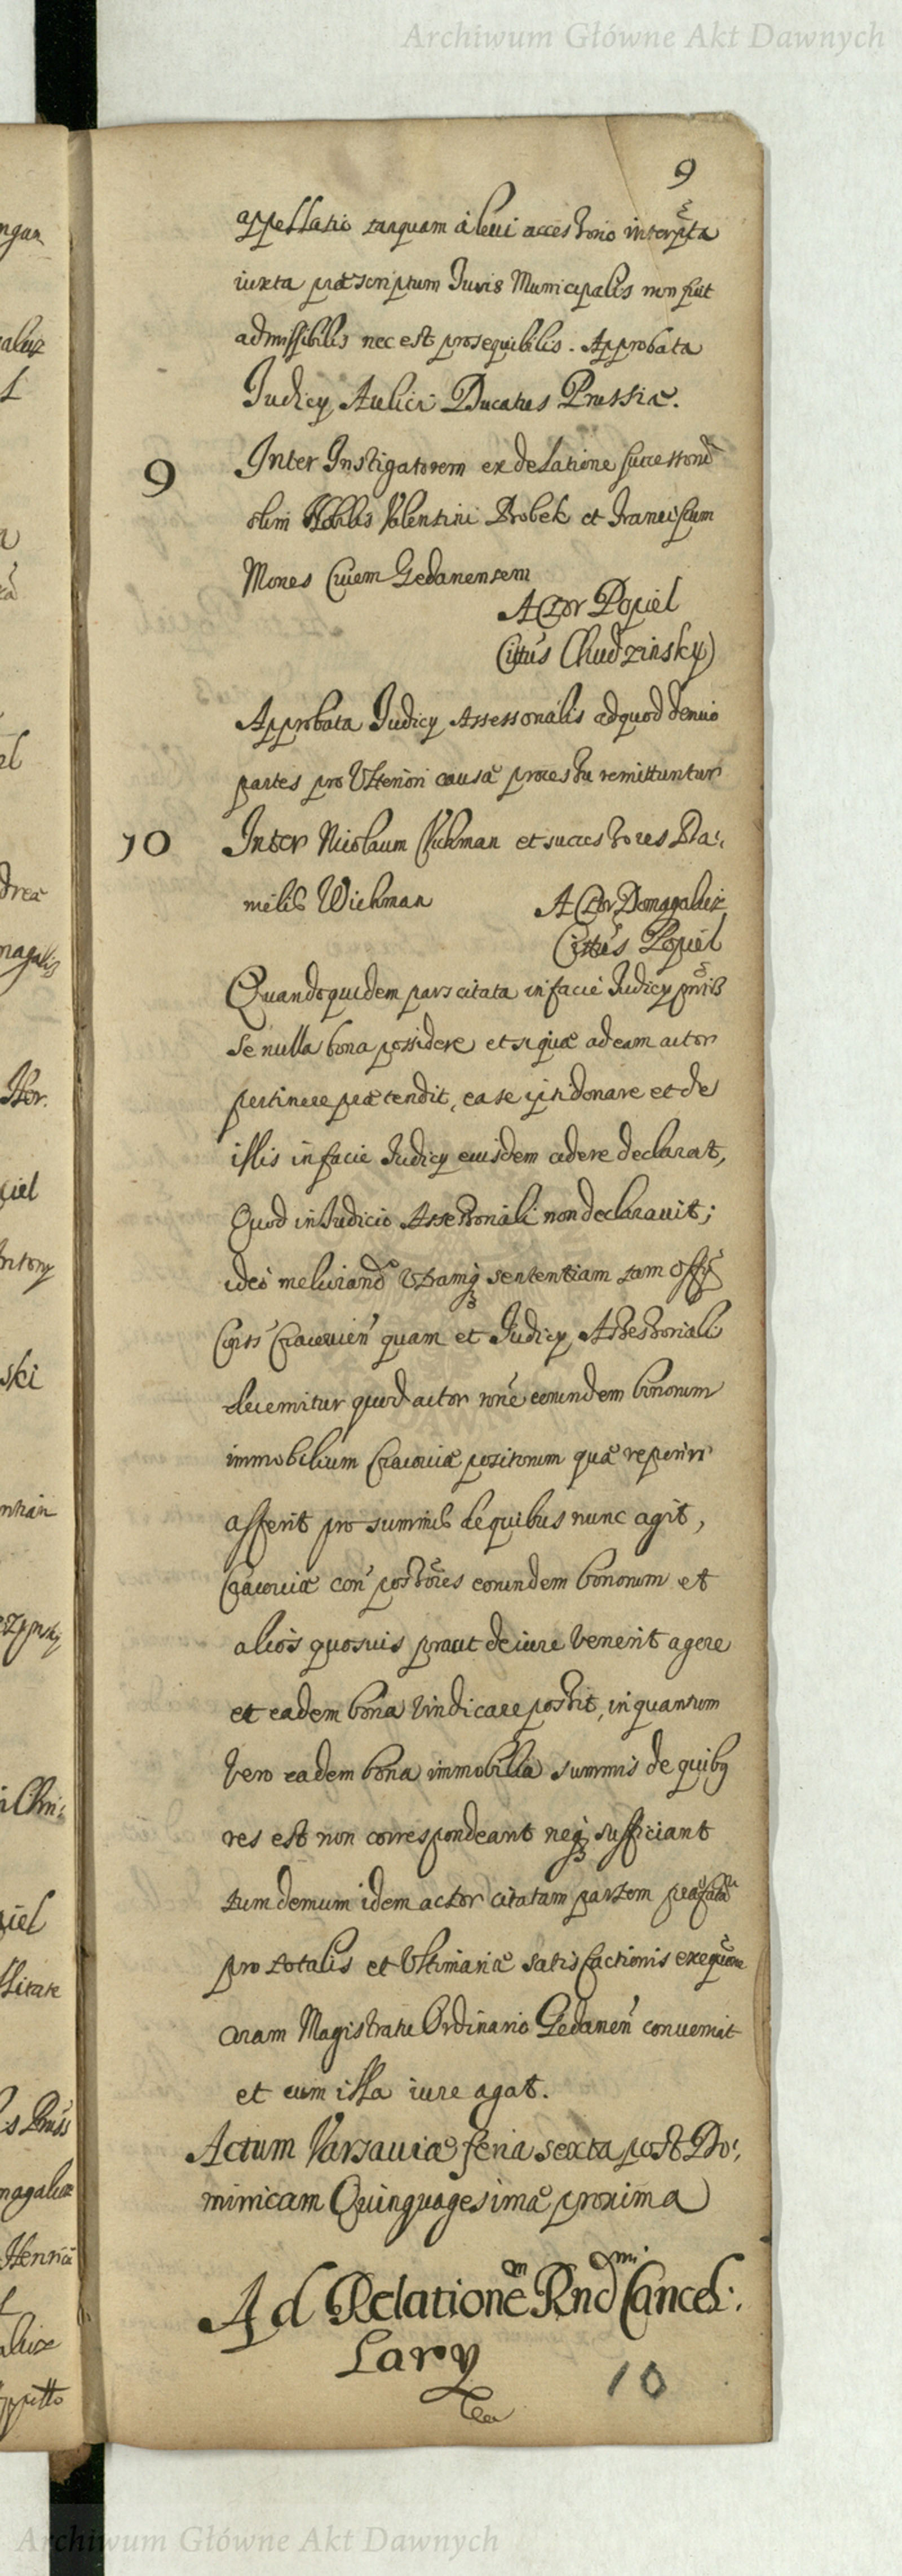 Archiwum Główne Akt Dawnych
9
appellatio tanquam á leui accessorio interpta
iuxta præscriptum Iuris Municipalis non fuit
admissibilis nec est prosequibilis. Approbata
Judicy Aulici Ducatus Prussiæ.
9 Inter Instigatorem ex delatione successorũ
olim Nobilis Valentini Drobek et Franciscum
Mones Ciuem Gedanensem
Actor Popiel
Cittus Chudzinsky
Approbata Judicy Assessorialis ad quod denuo
partes pro Ulteriori causæ processu remittuntur
10 Inter Nicolaum Wichman et successores Da:
nielis Wichman Actor Domagalicz
Cittus Popiel
Quandoquidem pars citata in facie Judicy pntis
se nulla bona possidere et si quæ ad eam actor
pertinere prætendit, ea se ipsi donare et de
illis in facie Judicy eiusdem cedere declarat,
Quod in Iudicio Assessoriali non declarauit;
ideò meliorandõ Utramq sententiam tam Offy
Cracouien quam et Judicy Assessoriali
decernitur quod actor rone eorundem bonorum
immobilium Cracouiæ positorum quæ reperiri
asserit pro summis de quibus nunc agit,
Cracouiæ con possores eorundem bonorum et
alios quosuis prout de iure Venerit agere
et eadem bona Vindicare possit, in quantum
Vero eadem bona immobilia summis de quibq
res est non correspondeant neq sufficiant
tum demum idem actor citatam partem
pro totalis et Ultimariæ satisfactionis
coram Magistratu Ordinario Gedanen conueniat
et cum illa iure agat.
Actum Varsauiæ feria sexta post Do:
minicam Quinquagesimæ proxima
Ad Relationem Rndmi Cancel:
lary
10
Archiwum Główne Akt Dawnych